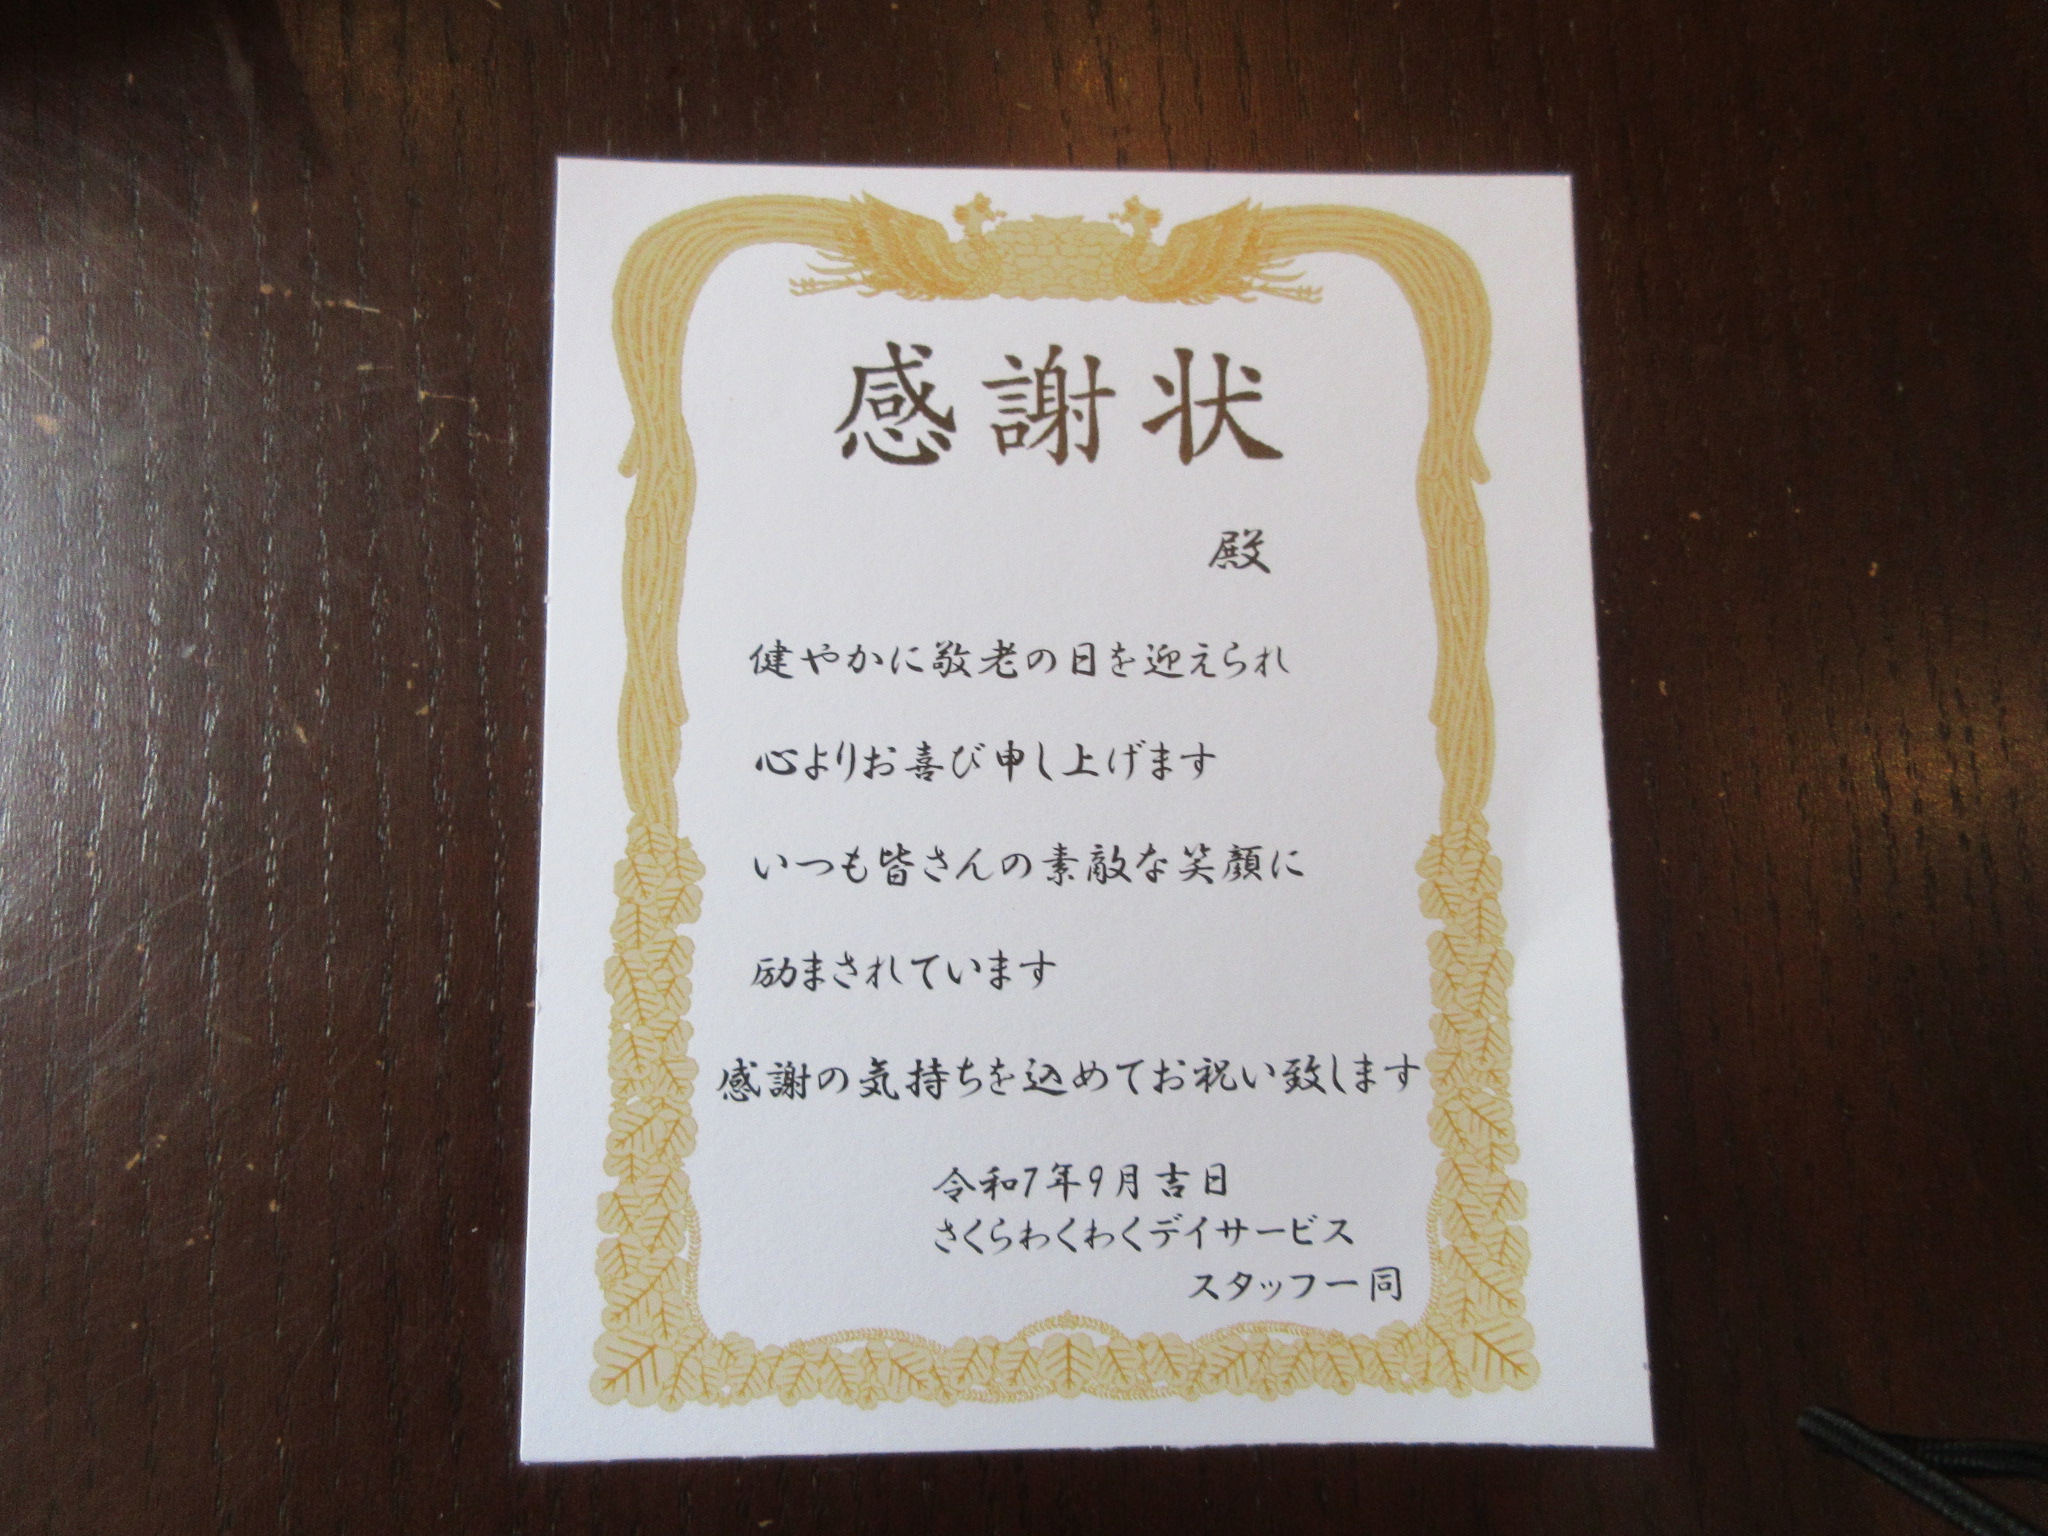 感謝状
殿
健やかに敬老の日を迎えられ
心よりお喜び申し上げます
いつも皆さんの素敵な笑顔に
励まされています
感謝の気持ちを込めてお祝い致します
令和7年9月吉日
さくらわくわくデイサービス
スタッフ一同